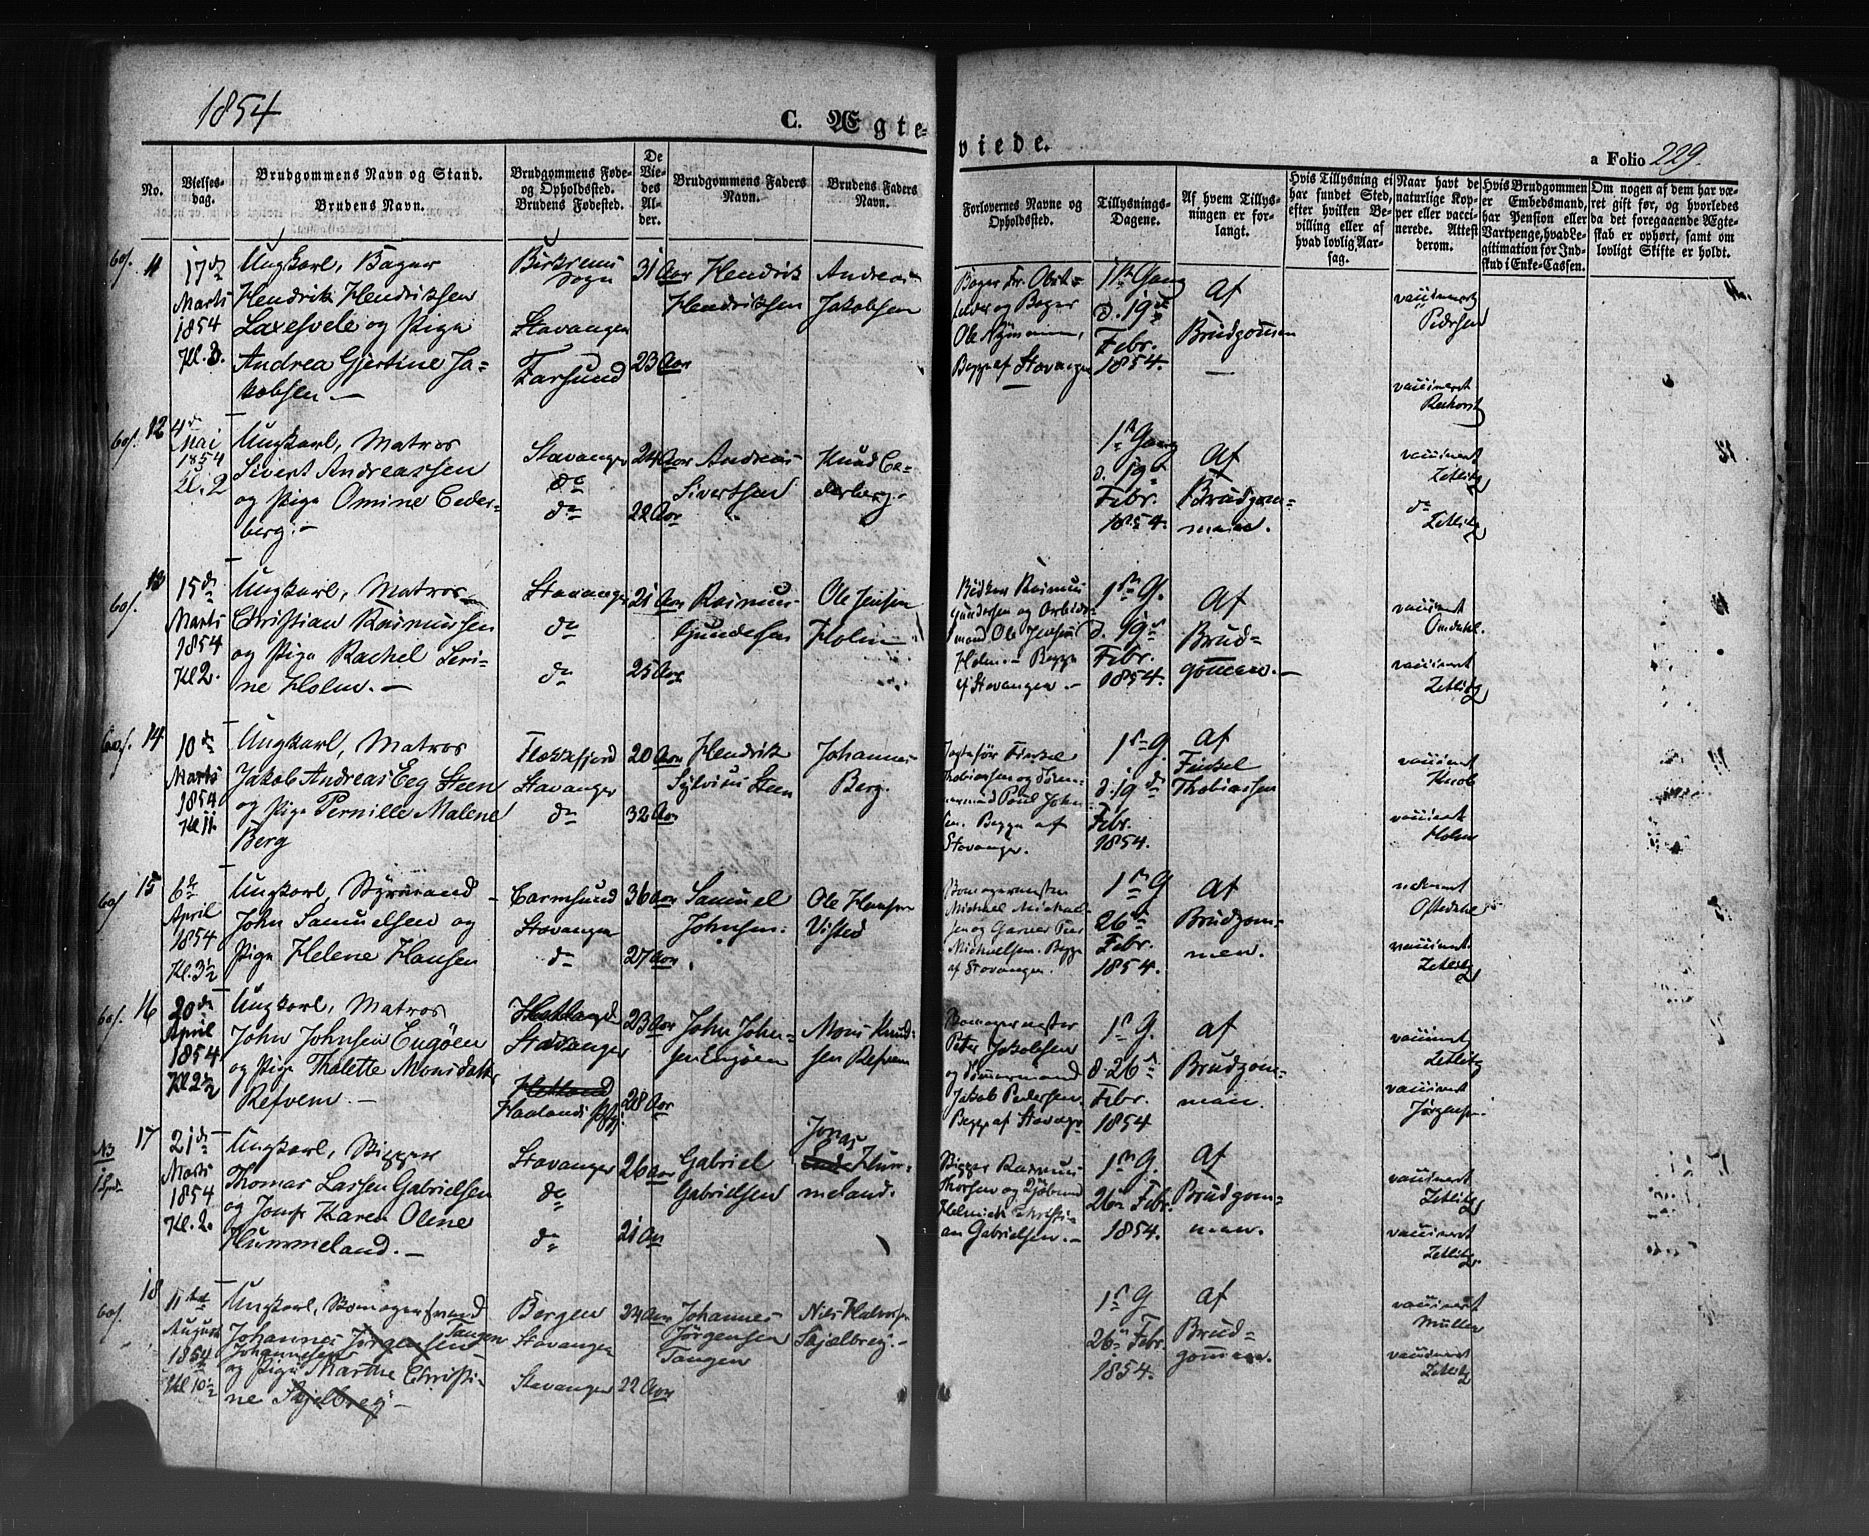 1854
C. Ægte-
viede.
a Folio 229.
No.
Vielses-
dag.
Brudgommens Navn og Stand.
Brudens Navn.
Brudgommens Føde-
og Opholdssted.
Brudens Fødested.
De
Vie-
des
Al-
der.
Brudgommens Faders
Navn.
Brudens Faders
Navn.
Forlovernes Navne og
Opholdssted.
Tillysnings-
Dagene.
Af hvem Tillys-
ningen er for-
langt.
Hvis Tillysning ei
har fundet Sted,
efter hvilken Be-
villing eller af
hvad lovlig Aar-
sag.
Naar havt de
naturlige Kop-
per eller vacci-
nerede. Attest
derom.
Hvis Brudgommen
er Embedsmand,
har Pension eller
Vartpenge, hvad Le-
gitimation for Ind-
skud i Enke-Cassen.
Om nogen af dem har væ-
ret gift før, og hvorledes
da det foregaaende Ægte-
skab er ophørt, samt om
lovligt Skifte er holdt.
60/.
11
17de
Marts
1854
Kl. 3.
Ungkarl, Bager
Hendrik Hendriksen
Laxesvele og Pige
Andrea Gjertine Ja-
kobsen. —
Birkrems
Sogn
Stavanger
Farsund
31 Aar
23 Aar
Hendrik
Hendriksen
Andreas
Jakobsen
Bager Fr.
og Bager
Ole
Begge af Stavanger
1ste Gang
d. 19de
Febr.
1854.
Af
Brudgommen
—
vaccineret
Pedersen
vaccineret
60/.
12
4de
Mai
1854
Kl. 2
Ungkarl, Matros
Sivert Andreassen
og Pige Omine Ceder-
berg. —
Stavanger
do
do
24 Aar
22 Aar
Andreas
Sivertsen
Knud Ce-
derberg.
1ste Gang
d. 19de
Febr.
1854.
Af
Brudgom-
men.
vaccineret
Zetlitz
do
Zetlitz
60/.
13
15de
Marts
1854
Kl 2.
Ungkarl, Matros
Christian Rasmussen
og Pige Rachel Seri-
ne Holm. —
Stavanger
do
do
21 Aar
25 Aar
Rasmus
Gundersen
Ole Jensen
Holm
Bødker Rasmus
Gundersen og Arbeids-
mand Ole Jensen
Holm. — Begge
af Stavanger. —
1ste G.
d. 19de
Febr.
1854.
Af
Brud-
gommen. —
vaccineret
Omdahl.
vaccineret
Zetlitz
14
10de
Marts
1854
Kl 11.
Ungkarl, Matros
Jakob Andreas Eeg Steen
og Pige Pernille Malene
Berg
Flekkefjord
Stavanger
do
20 Aar
32 Aar
Hendrik
Sylvius Steen
Johannes
Berg.
Finkel
Thobiassen og Tøm-
mermand Paul John-
sen. Begge af
Stavanger.
1ste G.
d. 19de
Febr.
1854.
af
Finkel
Thobiassen
vaccineret
Knob
vaccineret
Holm
60/
15
6te
April
1854
Kl. 3½
Ungkarl, Styrmand
John Samuelsen og
Pige Helene Hansen
Carmsund
Stavanger
do
36 Aar
27 Aar
Samuel
Johnsen.
Ole Hansen
Visted
Bomagermester
Michael Michael-
sen og Garver Peer
Michaelsen. Begge
af Stavanger.
1ste G
26de
Febr.
1854.
af
Brudgom-
men.
vaccineret
Oftedahl
vaccineret
Zetlitz
60/.
16
20de
April
1854
Kl 2½
Ungkarl, Matros
John Johnsen Engøen
og Pige Thalette Monsdatter
Refvem. —
Hetland
Stavanger
Hetland
Haalands Pgj.
23 Aar
28 Aar
John John-
sen Engøen
Mons Knud-
sen Refvem
Bomagermester
Peter Jakobsen
og Tømmermand
Jakob Pedersen.
Begge af Stavanger
1ste G.
d 26de
Febr.
1854
af
Brudgom-
men.
vaccineret
Zetlitz
vaccineret
Jørgensen.
17
21de
Marts
1854
Kl. 2.
Ungkarl, Rigger
Thomas Lassen Gabrielsen
og Jomfr Karen Oline
Hummeland. —
Stavanger
do
do
26 Aar
21 Aar
Gabriel
Gabrielsen
Jonas
Hum-
meland.
Rigger Rasmus
Thorsen og
Helmich Christi-
an Gabrielsen. —
1ste G.
26de Febr.
1854.
Af
Brudgom-
men.
vaccineret
Zetlitz
vaccineret
Zetlitz
60/.
18
11te
August
1854
Kl 10½
Ungkarl, Bomagersvend
Johannes Jørgensen Tangen
Johannesen
og Pige Marthe Christi-
ne Skjelbrey —
Bergen
Stavanger
Stavanger
24 Aar
22 Aar
Johannes
Jørgensen
Tangen
Nils Halvorsen
Skjælbreig. —
1ste G
26de Febr.
1854.
af
Brud-
gommen.
vaccineret
Müller
vaccineret
Zetlitz